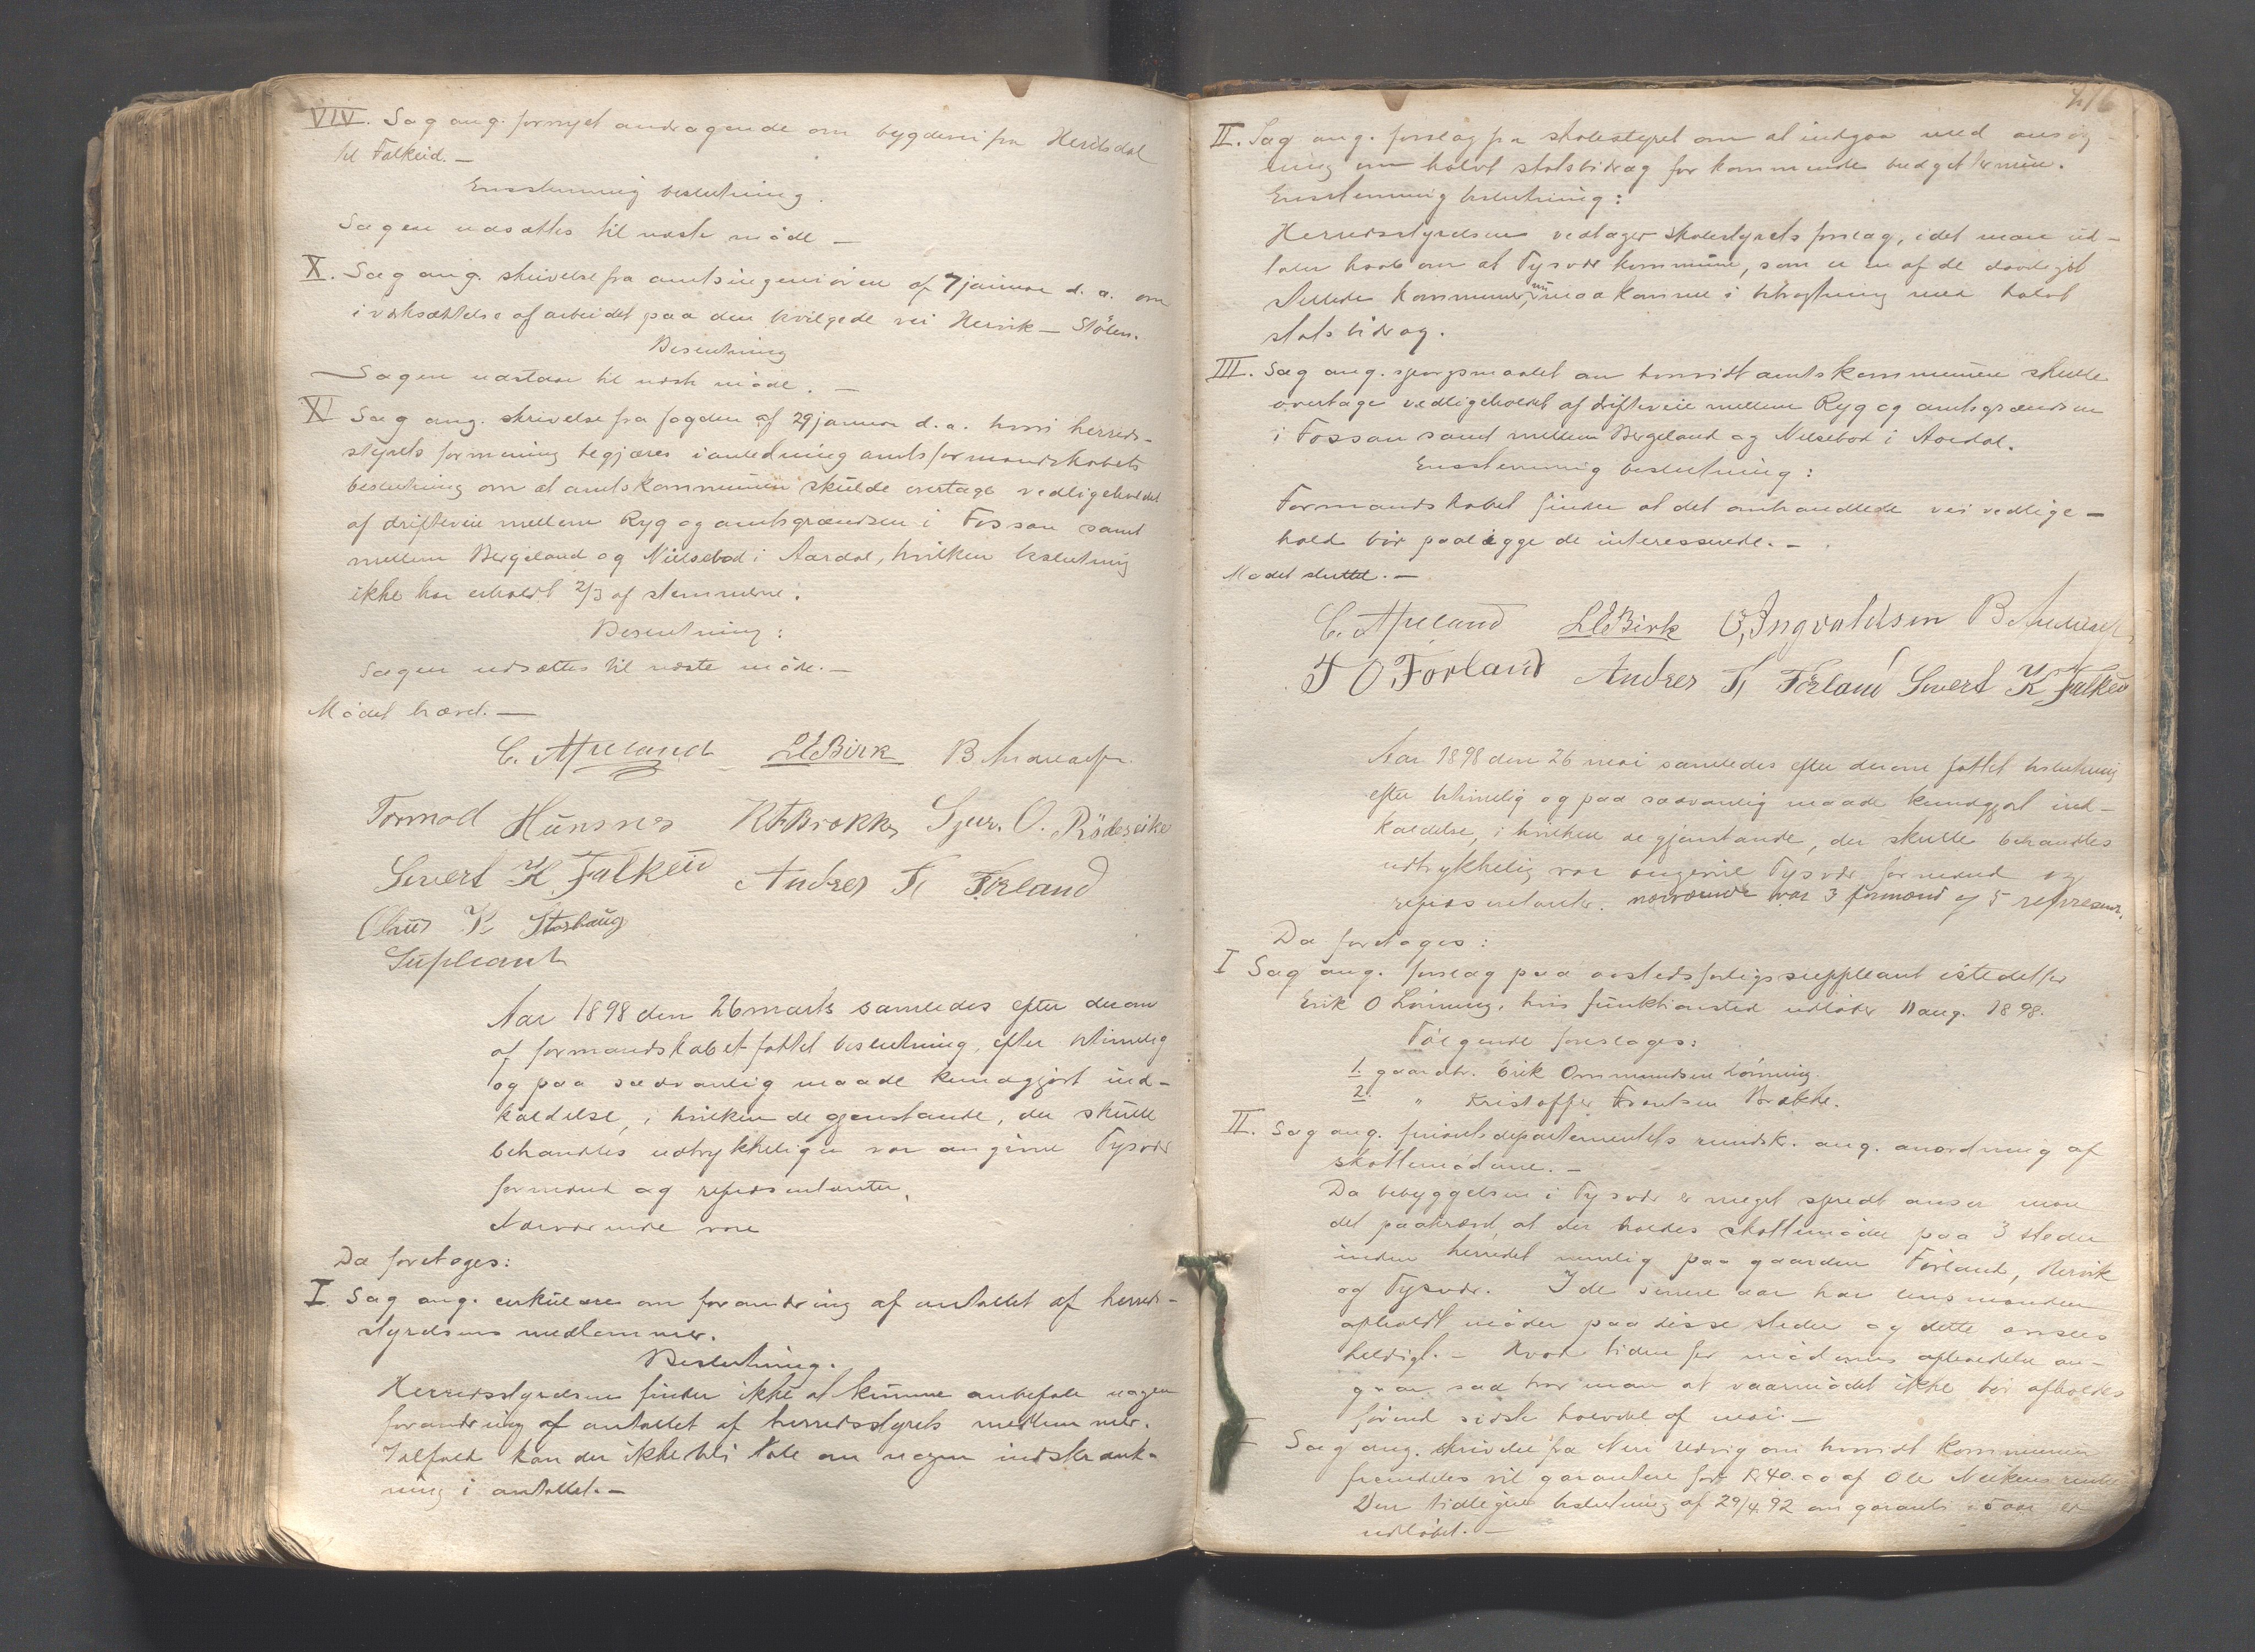 VIV. Sag ang. fornyet andragende om bygdevei fra Herilsdal
til Falkeid. —
Enstemmig beslutning.
Sagen udsættes til næste möde —
X. Sag ang. skrivelse fra amtsingeniören af 7 januar d. a. om
iværksættelse af arbeidet paa den bevilgede vei Hervik — Stölen.
Beslutning
Sagen udstaar til næste möde. —
XI Sag ang. skrivelse fra fogden af 29 januar d. a. hvori herreds-
styrets formening begjæres i anledning amtsformandskabets
beslutning om at amtskommunen skulde overtage vedligeholdet
af drifteveie mellem Ryg og amtsgrændsen i Fossan samt
mellem Bergeland og Nilsebod i Aardal, hvilken beslutning
ikke har erholdt 2/3 af stemmerne.
Beslutning:
Sagen udsættes til næste möde. —
Mödet hævet. —
C. Apeland LEBirk B. Andreassen
Tormod Hünsnes K F Brække Sjur. O. Rödseike
Sivert K. Falkeid Andres T. Förland
Olaus K Storhaug
Supleant
Aar 1898 den 26 marts samledes efter derom
af formandskabet fattet beslutning, efter betimelig
og paa sædvanlig maade kundgjort ind-
kaldelse, i hvilken de gjenstande, der skulle
behandles udtrykkeligen var angivne Tysvær
formænd og repræsentanter.
Nærværende vare
Da foretoges:
I. Sag ang. cirkulære om forandring af antallet af herreds-
styrelsens medlemmer.
Beslutning.
Herredsstyrelsen finder ikke at kunne anbefale nogen
forandring af antallet af herredsstyrets medlemmer.
Ialfald kan der ikke bli tale om nogen indskrænk-
ning i antallet. —
II. Sag ang. forslag fra skolestyret om at indgaa med ansög-
ning om halvt statsbidrag for kommende budgettermin.
Enstemmig beslutning:
Herredsstyrelsen vedtager skolestyrets forslag, idet man ud-
taler haab om at Tysvær kommune, som er en af de daarligst
stillede kommuner, nu maa komme i betragtning med halvt
statsbidrag.
III. Sag ang. spörgsmaalet om hvorvidt amtskommunen skulle
overtage vedligeholdet af drifteveie mellem Ryg og amtsgrændsen
i Fossan samt mellem Bergeland og Nilsebod i Aardal.
Enstemmig beslutning:
Formandskabet finder at det omhandlede vei vedlige-
hold bör paalægge de interesserede. —
Mödet sluttet. —
C. Apeland LEBirk O, Ingvaldsen B. Andreassen
T O Forland Andres T. Förland Sivert K Falkeid
Aar 1898 den 26 mai samledes efter derom fattet beslutning
efter betimelig og paa sædvanlig maade kundgjort ind-
kaldelse, i hvilken de gjenstande, der skulle behandles
udtrykkelig var angivne Tysvær formænd og
repræsentanter. nærværende var 3 formænd og 5 repræsent.
Da foretoges:
I Sag ang. forslag paa aastedsforligssuppleant istedetfor
Erik O Lönning, hvis funktionstid udlöber 11 aug. 1898.
Fölgende foreslages:
1. gaardbr. Erik Ommundsen Lönning.
2. " Kristoffer Brække.
II. Sag ang. finantsdepartementets rundsk. ang. anordning af
skattemöderne. —
Da bebyggelsen i Tysvær er meget spredt anser man
det paakrævet, at der holdes skattemöder paa 3 steder
inden herredet nemlig paa gaarden Förland, Hervik
og Tysvær. I de senere aar har lensmanden
afholdt möder paa disse steder og dette ansees
heldigt. — Hvad tiden for mödernes afholdelse an-
gaar saa tror man at vaarmödet ikke bör afholdes
förend sidste halvdel af mai —
Sag ang. skrivelse fra om hvorvidt kommunen
fremdeles vil garantere for K 40.00 af Ole
Den tidligere beslutning af 29/4 92 om garanti i 5 aar er
udlöbet. —